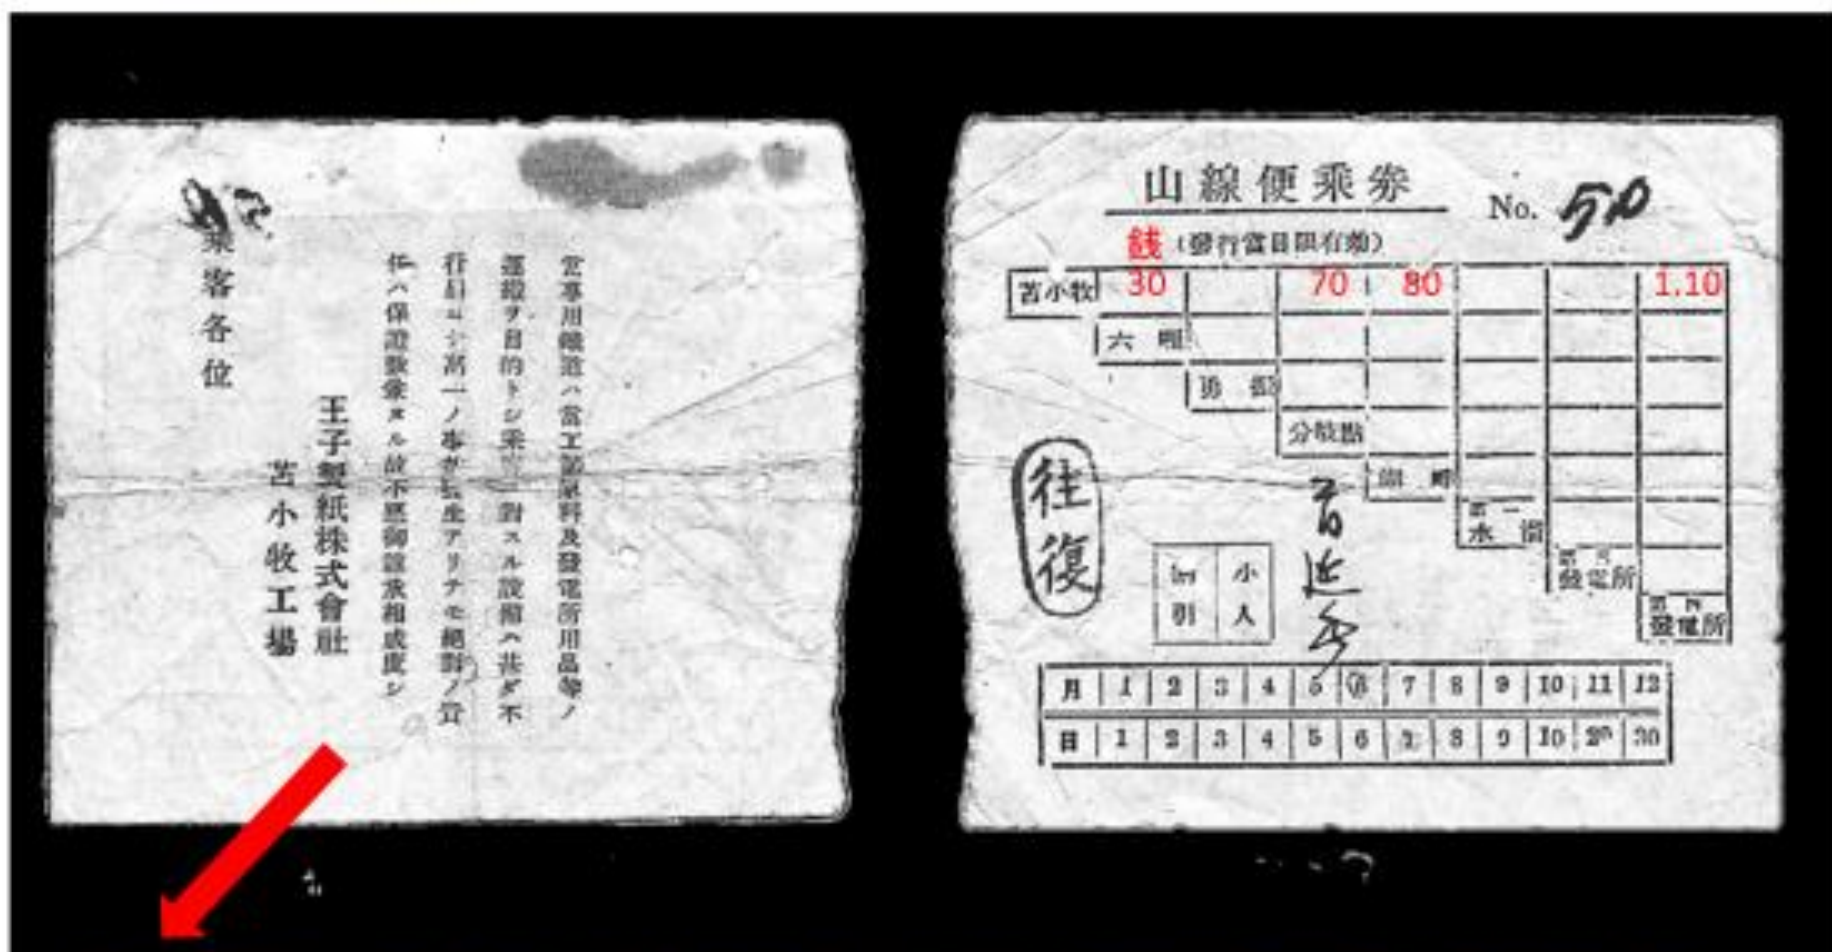 當專用鐵道ハ當工場原料及發電所用品等ノ
運搬ヲ目的トシ乘客ニ對スル設備ハ甚ダ不
行屆ニシ萬一ノ事故發生アリテモ絕對ノ責
任ハ保證致兼ヌル故不惡御諒承相成度シ
王子製紙株式會社
苫小牧工場
乘客各位
山線便乘券
No. 510
銭 (發行當日限有効)
苫小牧 30 70 80 1.10
六哩
分岐點
水溜
發電所
第四
發電所
往復
小人
割引
月 1 2 3 4 5 6 7 8 9 10 11 12
日 1 2 3 4 5 6 7 8 9 10 20 30